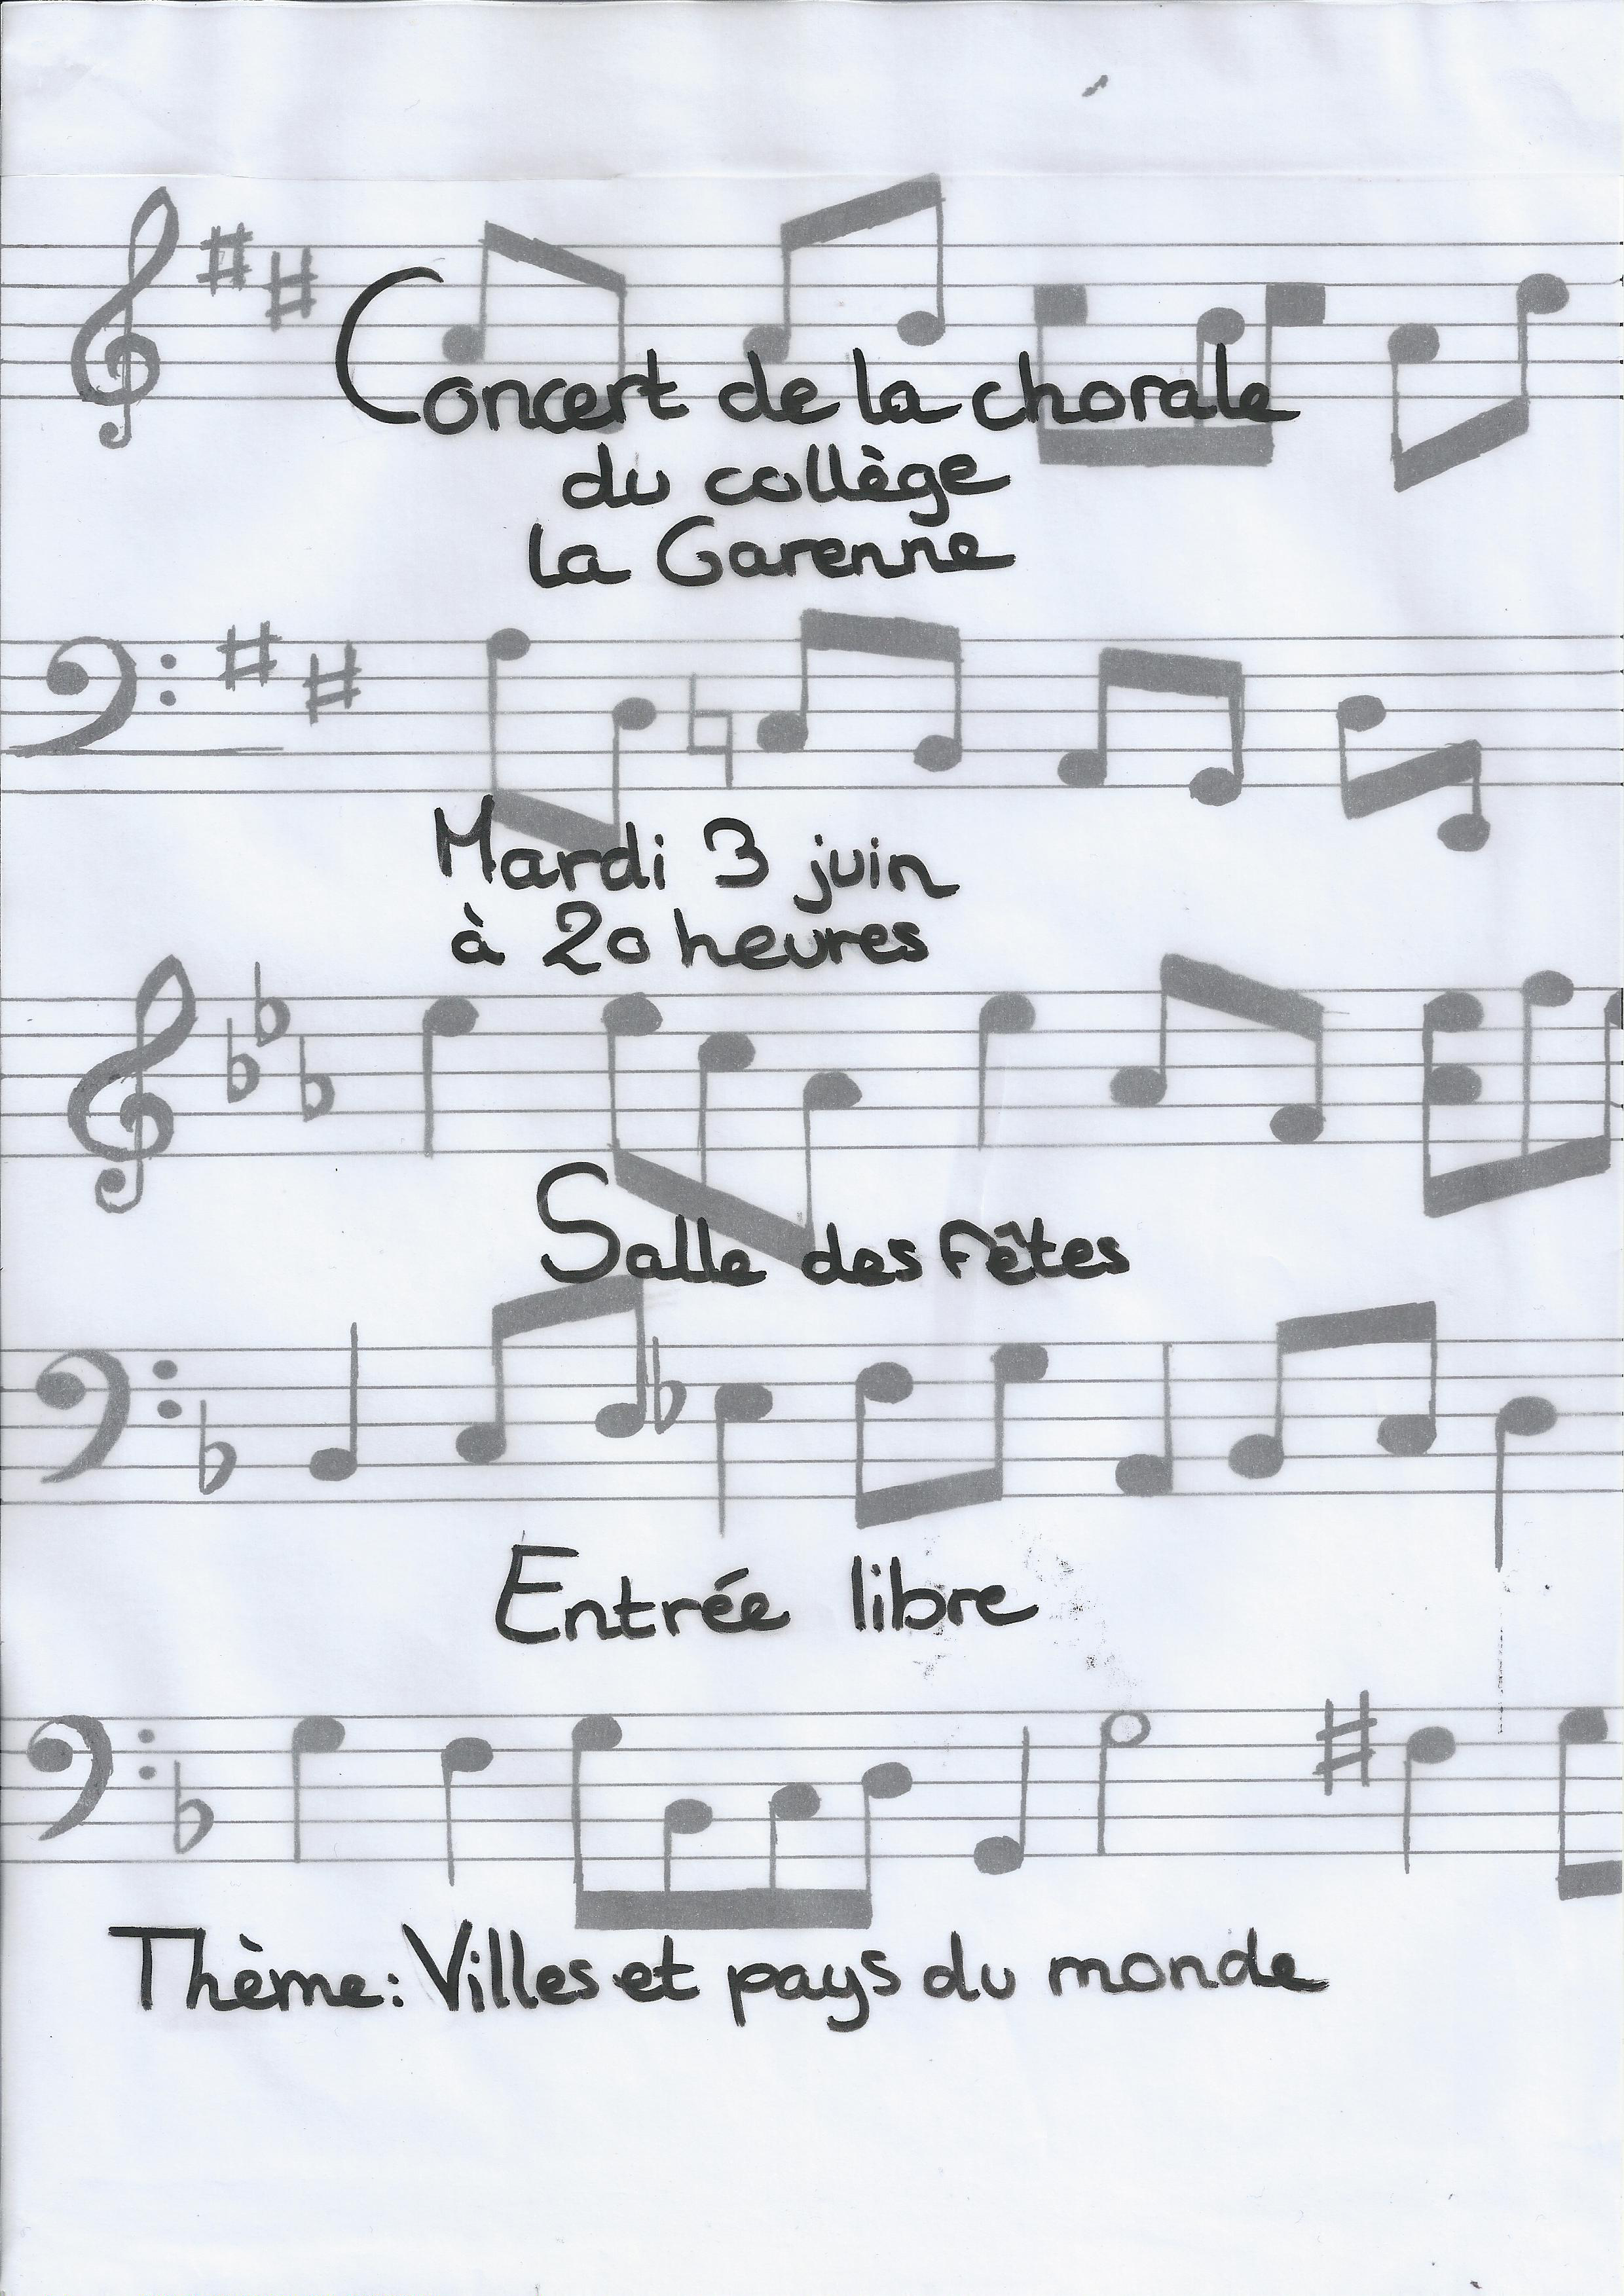 Concert de la chorale
du collège
la Garenne
Mardi 3 juin
à 20 heures
Salle des fêtes
Entrée libre
Thème: Villes et pays du monde